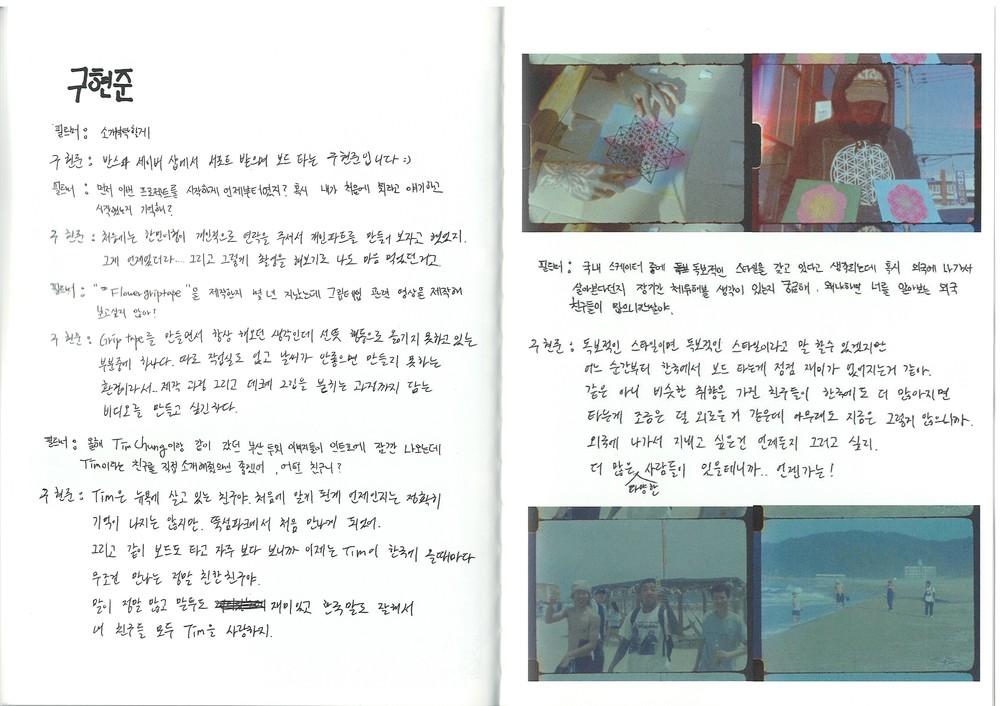 구현준
필르머 : 소개부탁할게
구현준 : 반스와 세이버 샵에서 서포트 받으며 보드 타는 구현준입니다 :)
필르머 : 먼저 이번 프로젝트를 시작하게 언제부터였지? 혹시 내가 처음에 뭐라고 얘기하고
시작했는지 기억해?
구현준 : 처음에는 한민이형이 개인적으로 연락을 주셔서 개인파트를 만들어 보자고 했었지.
그게 언제였더라.... 그리고 그렇게 촬영을 해보기로 나도 마음 먹었던거고.
필르머 : "Flowergriptape"을 제작한지 몇 년 지났는데 그립테잎 관련 영상을 제작해
보고싶지 않아!
구현준 : Grip tape를 만들면서 항상 해오던 생각인데 선뜻 행동으로 옮기지 못하고 있는
부분중에 하나다. 따로 작업실도 없고 날씨가 안좋으면 만들지 못하는
환경이라서.. 제작 과정 그리고 데크에 그립을 붙히는 과정까지 담는
비디오를 만들고 싶긴하다.
필르머 : 올해 Tim Chung이랑 같이 갔던 부산 투어 이미지들이 인트로에 잠깐 나오는데
Tim이라는 친구를 직접 소개해줬으면 좋겠어, 어떤 친구니?
구현준 : Tim은 뉴욕에 살고 있는 친구야. 처음에 알게 된게 언제인지는 정확히
기억이 나지는 않지만. 뚝섬파크에서 처음 만나게 되었어.
그리고 같이 보드도 타고 자주 보다 보니까 이제는 Tim이 한국에 올때마다
무조건 만나는 정말 친한친구야.
말이 정말 많고 말투도 재미있고 한국말도 잘해서
내 친구들 모두 Tim을 사랑하지.
필르머 : 국내 스케이터 중에 독보적인 스타일을 갖고 있다고 생각되는데 혹시 외국에 나가서
살아본다던지 장기간 체류해볼 생각이 있는지 궁금해. 왜냐하면 너를 알아보는 외국
친구들이 있으니깐말야.
구현준 : 독보적인 스타일이면 독보적인 스타일이라고 말 할수 있겠지만
어느 순간부터 한국에서 보드 타는게 점점 재미가 없어지는거 같아.
같은 아니 비슷한 취향을 가진 친구들이 한국에도 더 많아지면
타는게 조금은 덜 외로운거 같은데 아무래도 지금은 그렇지 않으니까.
외국에 나가서 지내고 싶은건 언제든지 그러고 싶지.
더 많은 다양한 사람들이 있을테니까.. 언젠가는!